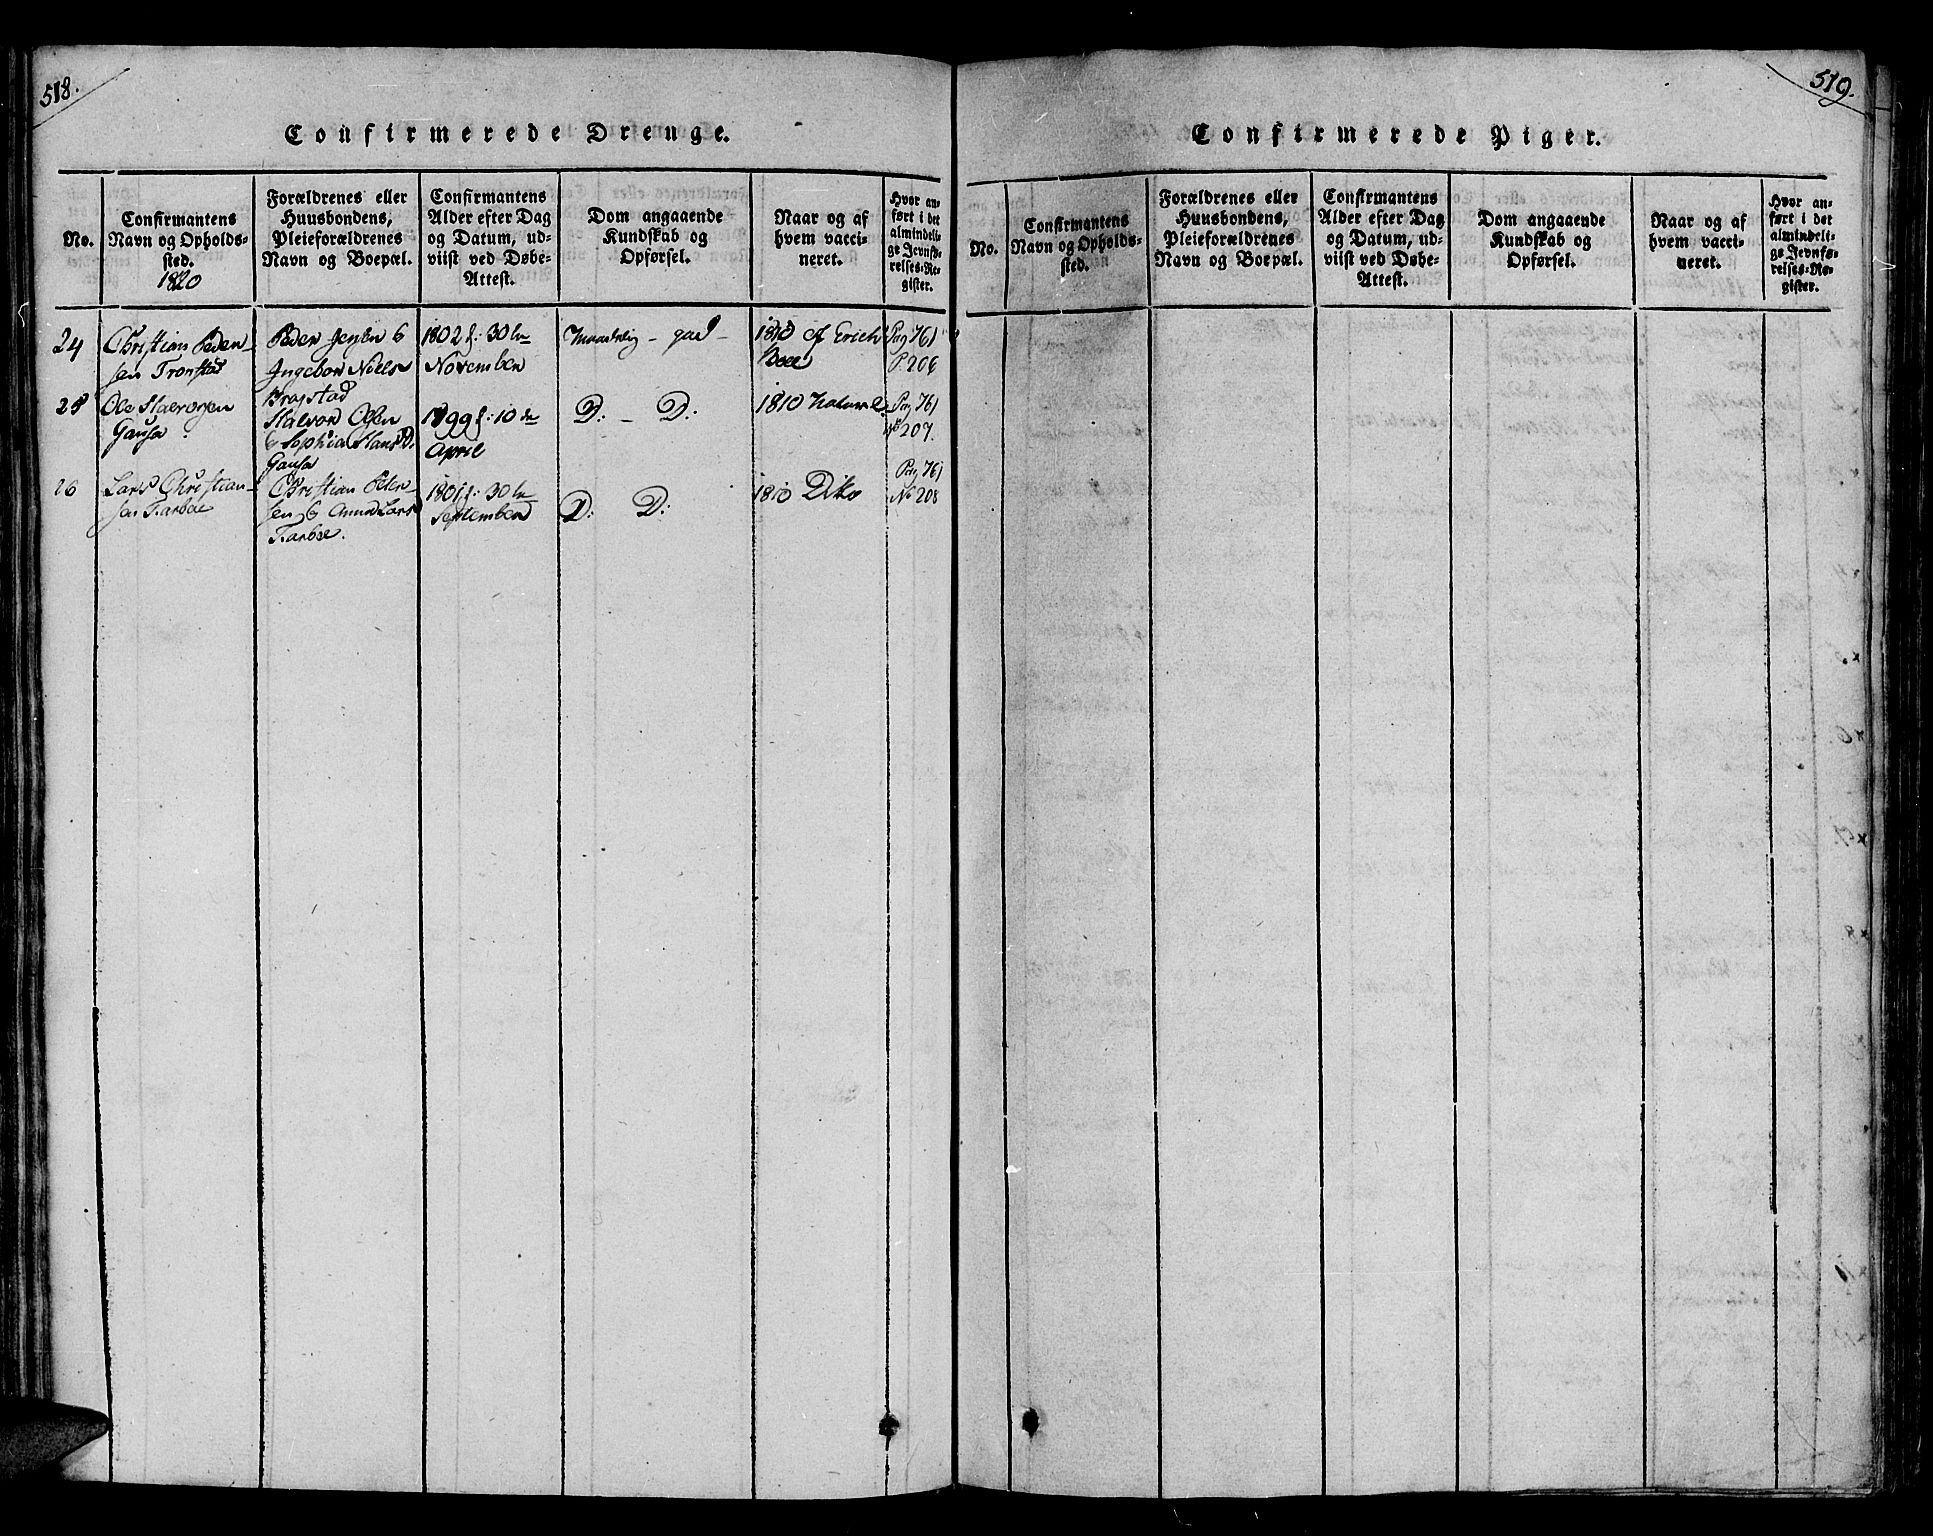 518.
Confirmerede Drenge.
No.
Confirmantens
Navn og Opholds-
sted.
1820
Forældrenes eller
Huusbondens,
Pleieforældrenes
Navn og Boepæl.
Confirmantens
Alder efter Dag
og Datum, ud-
viist ved Døbe-
Attest.
Dom angaaende
Kundskab og
Opførsel.
Naar og af
hvem vacci-
neret.
Hvor an-
ført i det
almindeli-
ge Jevnfø-
relses-Re-
gister.
24
Christian Peder-
sen Tronstad
Peder Jensen &
Ingebor Niels
Bragstad
1802 f: 30te
November
Maadelig - god -
1810 af Erich
Boee
Pag 761
P. 206
25
Ole Halvorsen
Halvor Olsen
& Sophia Hans D.
1799 f: 10de
April
D: - D:
1810
Pag 761
No 207.
26
Lars Christian-
sen
Christian Peter-
sen & Anna Lars
1801 f: 30te
September
D: D:
1810 Dito
Pag 761
No 208
519.
Confirmerede Piger.
No.
Confirmantens
Navn og Opholds-
sted.
Forældrenes eller
Huusbondens,
Pleieforældrenes
Navn og Boepæl.
Confirmantens
Alder efter Dag
og Datum, ud-
viist ved Døbe-
Attest.
Dom angaaende
Kundskab og
Opførsel.
Naar og af
hvem vacci-
neret.
Hvor an-
ført i det
almindeli-
ge Jevnfø-
relses-Re-
gister.